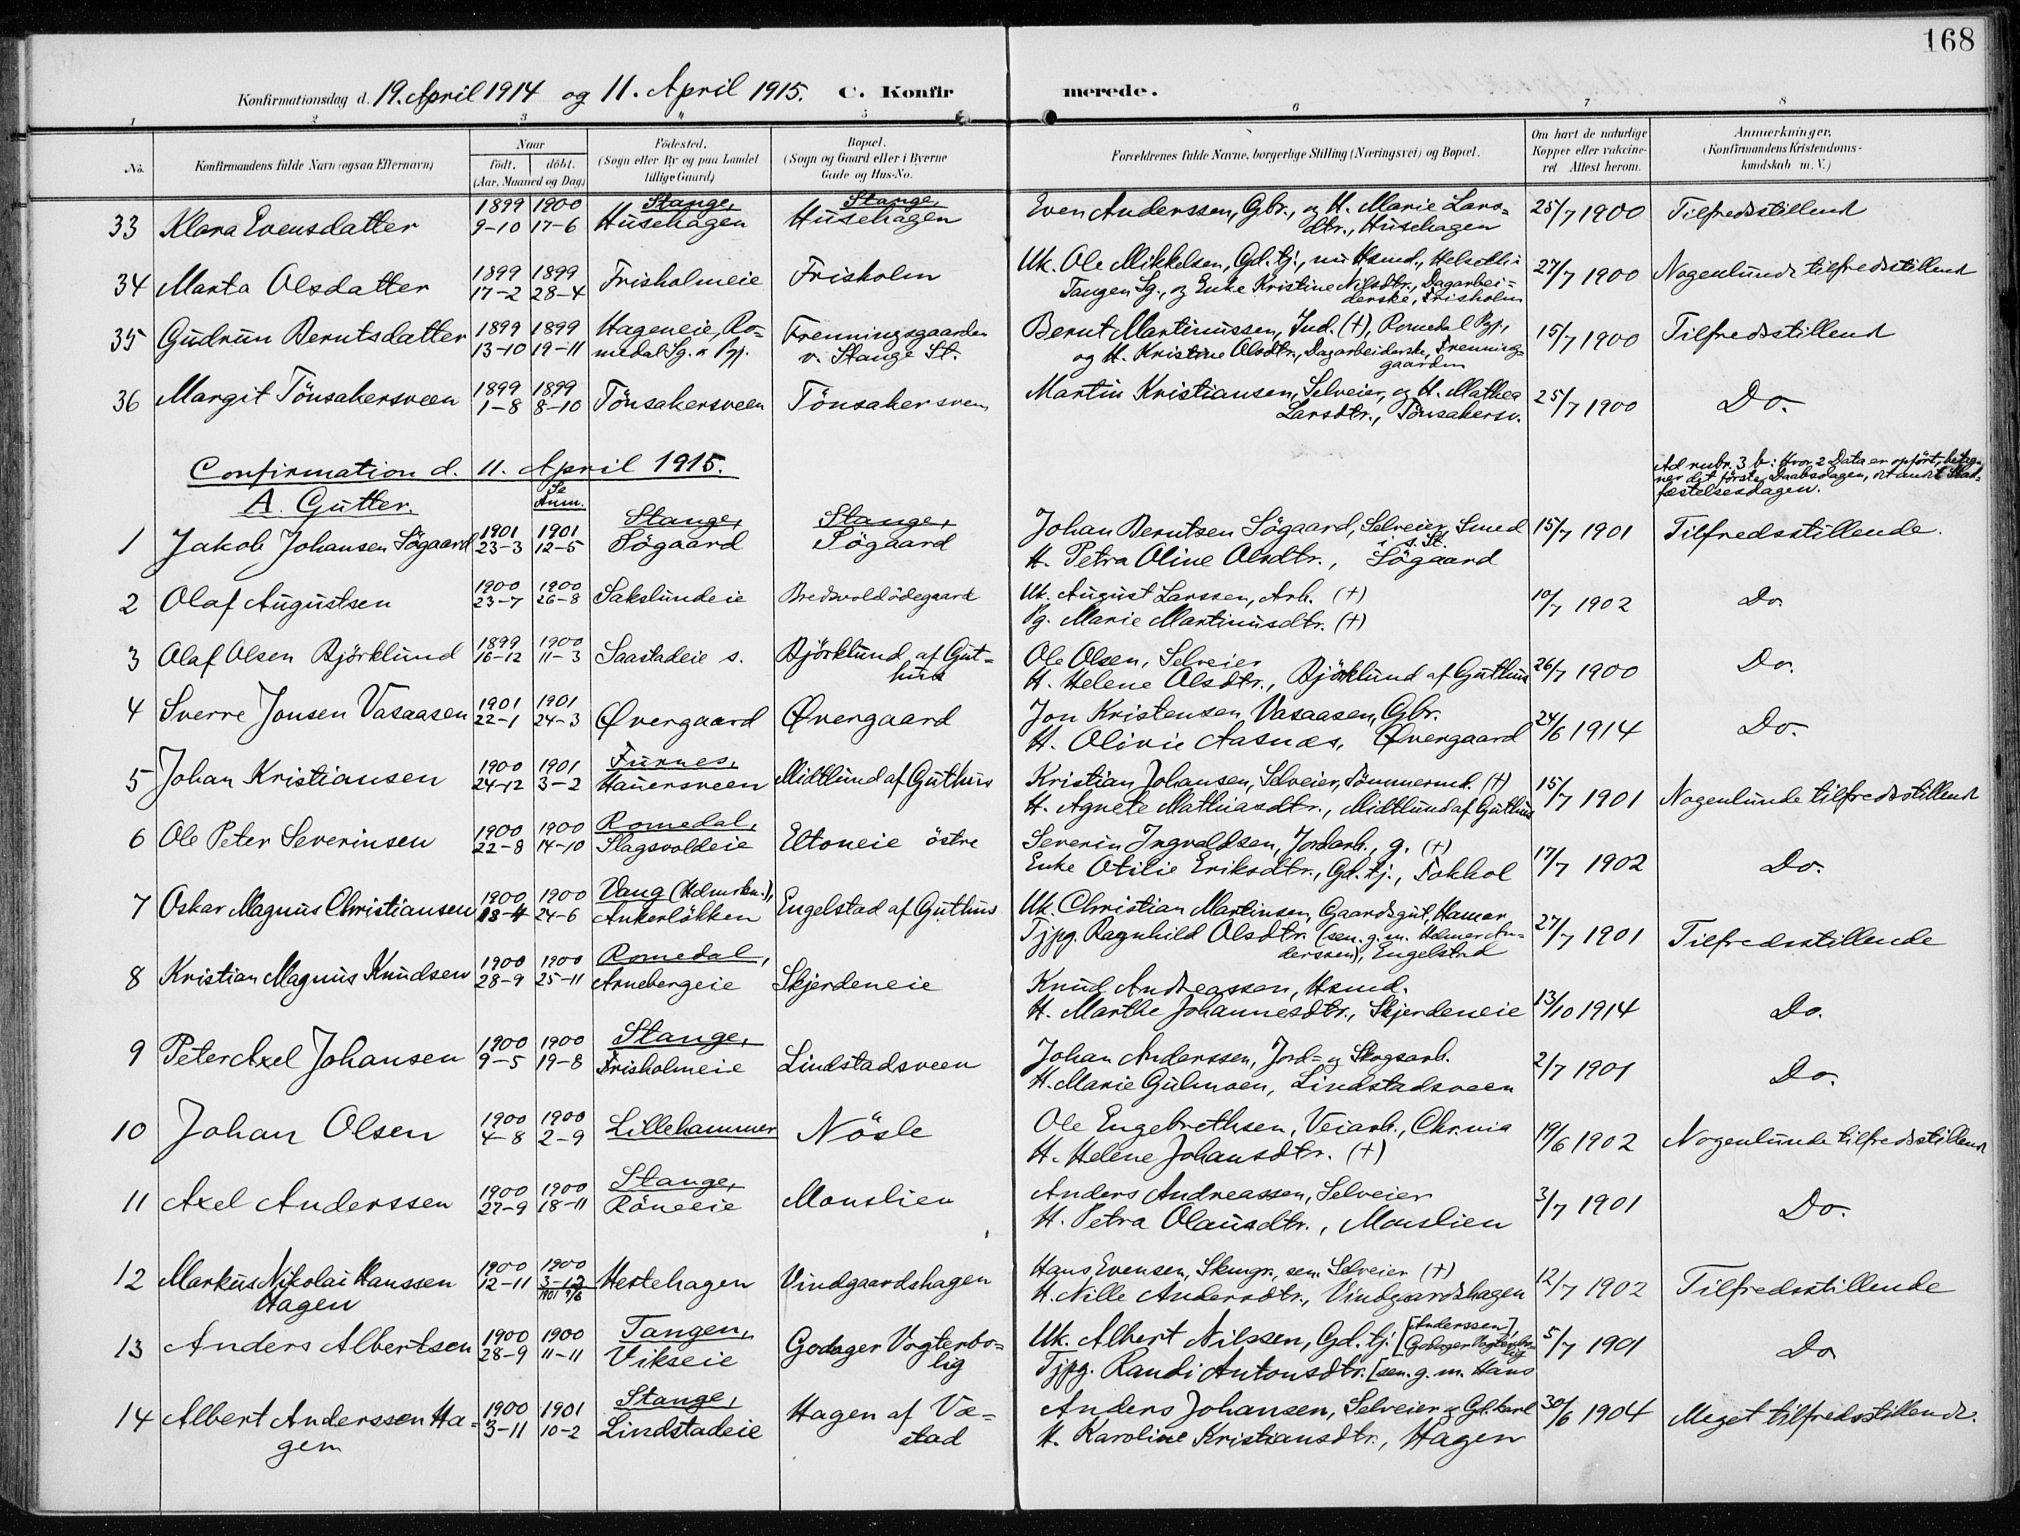 168
Konfirmationsdag d. 19. April 1914 og 11. April 1915. C. Konfirmerede.
1 2 3 4 5 6 7 8
No. Konfirmandens fulde Navn (ogsaa Efternavn) Naar födt. döbt. (Aar, Maaned og Dag) Födested. (Sogn eller By og paa Landet tillige Gaard) Bopæl. (Sogn og Gaard eller i Byerne Gade og Hus-No. Forældrenes fulde Navne, borgerlige Stilling (Næringsvei) og Bopæl. Om havt de naturlige Kopper eller vaccineret Attest herom. Anmerkninger. (Konfirmandens Kristendomskundskab m. V.)
33 Klara Evensdatter 1899 9-10 1900 17-6 Stange, Husehagen Stange, Husehagen Even Anderssen, Gbr., og H. Marie Larsdtr., Husehagen 25/7 1900 Tilfredsstillend
34 Marta Olsdatter 1899 17-2 1899 28-4 Frisholmeie Frisholm Uk. Ole Mikkelsen, Gd.tj., nu Hsmd., Helsetli Tangen Sg., og Enke Kristine Nilsdtr., Dagarbeiderske, Frisholm 27/7 1900 Nogenlunde tilfredsstillend
35 Gudrun Berntsdatter 1899 13-10 1899 19-11 Hageneie, Romedal Sg. o Pgj. Frenningsgaarden v. Stange St. Bernt Martinussen, Ind. (+), Romedal Pgj., og H. Kristine Olsdtr., Dagarbeiderske, Frenninggaarden 15/7 1900 Tilfredsstillend
36 Margit Tönsakersveen 1899 1-8 1899 8-10 Tönsakersveen Tönsakersveen Martin Kristiansen, Selveier, og H. Mathea Larsdtr., Tönsakersv. 25/7 1900 Do.
Confirmation d. 11. April 1915.
A. Gutter. Se Anm. Ad rubr. 3 b: Hvor 2 Data er opført, betegner det første Daabsdagen, det andet Stadfæstelsesdagen.
1 Jakob Johansen Sögaard 1901 23-3 1901 12-5 Stange, Sögaard Stange, Sögaard Johan Berntsen Sögaard, Selveier, Smed i s. St. H. Petra Oline Olsdtr., Sögaard 15/7 1901 Tilfredsstillende.
2 Olaf Augustsen 1900 23-7 1900 26-8 Sakslundeie Bredvoldödegaard Uk. August Larssen, Arb. (+) Pg. Marie Martinusdtr. (+) 10/7 1902 Do.
3 Olaf Olsen Björklund 1899 16-12 1900 11-3 Saastadeie s. Björklund af Guthus Ole Olsen, Selveier H. Helene Olsdtr., Björklund af Guthus 26/7 1900 Do.
4 Sverre Jonsen Vasaasen 1901 22-1 1901 24-3 Øvergaard Øvergaard Jon Kristensen Vasaasen, Gbr. H. Olivie Aasnæs, Øvergaard 24/6 1914 Do.
5 Johan Kristiansen 1900 24-12 1901 3-2 Furnes, Hauersveen Midtlund af Guthus Kristian Johansen, Selveier, Tömmermd. (+) H. Agnete Mathiasdtr., Midtlund af Guthus 15/7 1901 Nogenlunde tilfredsstillend
6 Ole Peter Severinsen 1900 22-8 1900 14-10 Romedal, Slagsvoldeie Eltoneie östre Severin Ingvaldsen, Jordarb., g. (+) Enke Otilie Eriksdtr., Gd.tj., Fokhol 17/7 1902 Do.
7 Oskar Magnus Christiansen 1900 18-4 1900 24-6 Vang (Hdmrkn.), Ankerlökken Engelstad af Guthus Uk. Christian Martinsen, Gaardsgut, Hamar Tjpg. Ragnhild Olsdtr. (sen. g. m. Helmer Anderssen), Engelstad 27/7 1901 Tilfredsstillende
8 Kristian Magnus Knudsen 1900 28-9 1900 25-11 Romedal, Arnebergeie Skjerdeneie Knud Andreassen, Hsmd. H. Marthe Johannesdtr., Skjerdeneie 13/10 1914 Do.
9 Peter Axel Johansen 1900 9-5 1900 19-8 Stange, Frisholmeie Lindstadsveen Johan Anderssen, Jord- og Skogsarb. H. Marie Gulmoen, Lindstadsveen 2/7 1901 Do.
10 Johan Olsen 1900 4-8 1900 2-9 Lillehammer Nösle Ole Engebrethsen, Veiarb., Chr.nia H. Helene Johansdtr. (+) 19/6 1902 Nogenlunde tilfredsstillend
11 Axel Anderssen 1900 27-9 1900 18-11 Stange, Röneeie Monslien Anders Andreassen, Selveier H. Petra Olausdtr., Monslien 3/7 1901 Do.
12 Markus Nikolai Hanssen Hagen 1900 12-11 1900 3-12 1901 9/6 Hestehagen Vindgaardshagen Hans Evensen, Skmgr., sen. Selveier (+) H. Nille Andersdtr., Vindgaardshagen 12/7 1902 Tilfredsstillende
13 Anders Albertsen 1900 28-9 1900 11-11 Tangen, Vikseie Godager Vogterbolig Uk. Albert Nilssen, Gd.tj. Tjpg. Randi Antonsdtr. [sen. g. m. Hans Anderssen], Godager Vogterbolig 5/7 1901 Do
14 Albert Anderssen Hagen 1900 3-11 1901 10-2 Stange, Lindstadeie Hagen af Vestad Anders Johansen, Selveier og Gd.karl H. Karoline Kristiansdtr., Hagen 30/6 1904 Meget tilfredsstillende.